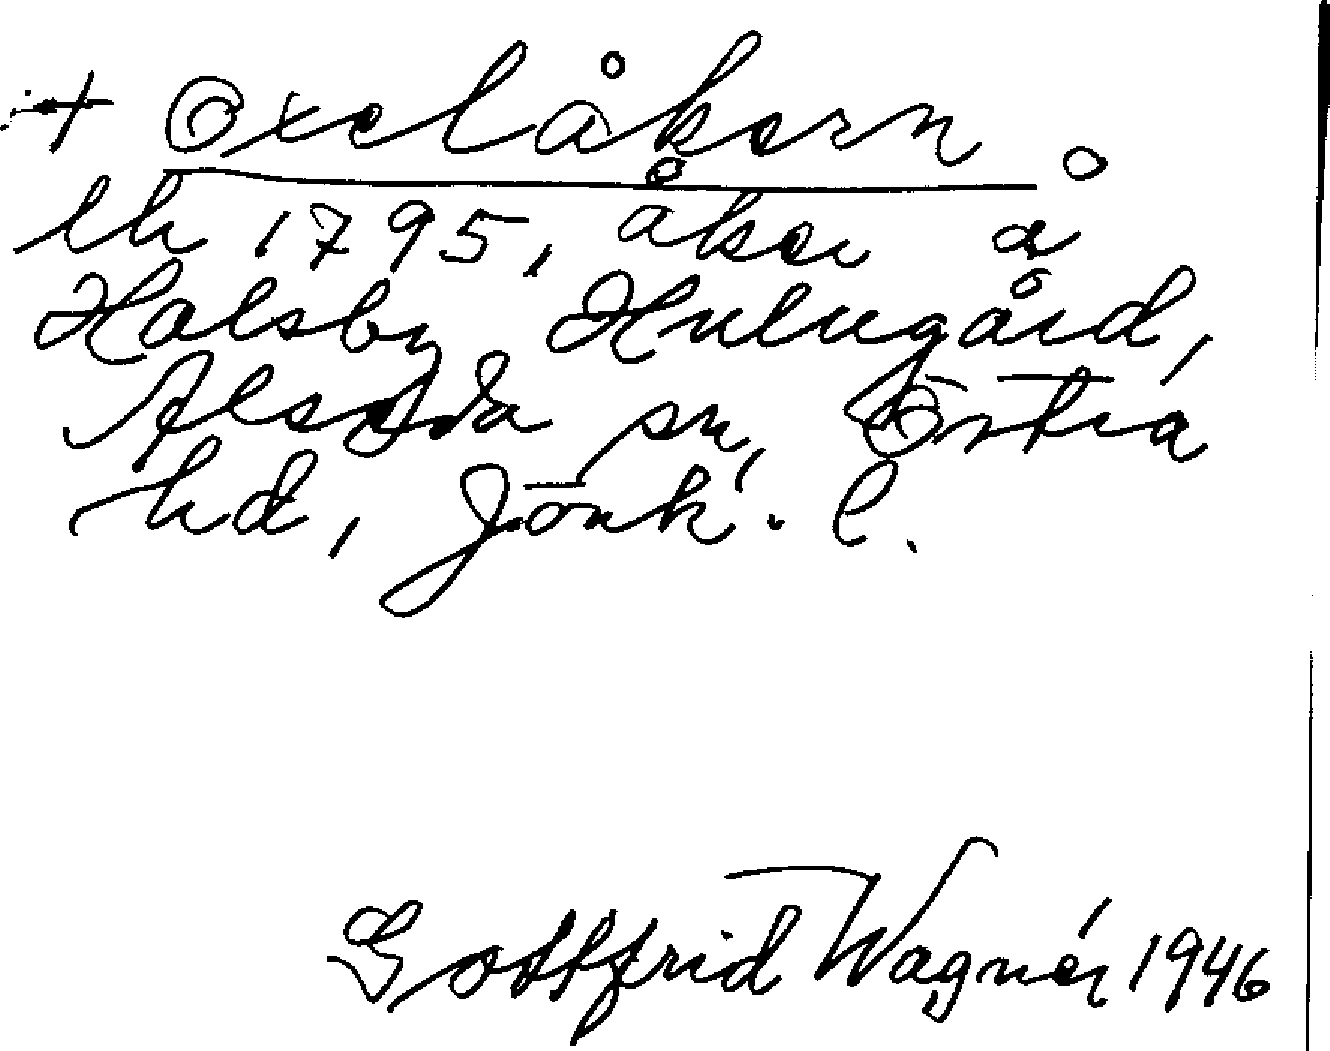 + Oxelåkern
lh 1795, åker å
Halsby Hulugård,
Alseda sn, Östra
hd, Jönk. l.
Gottfrid Wagnér 1946